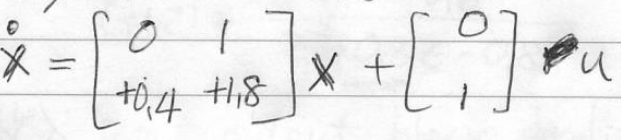 ẋ = [0 1; +0,4 +1,8] x + [0; 1] u